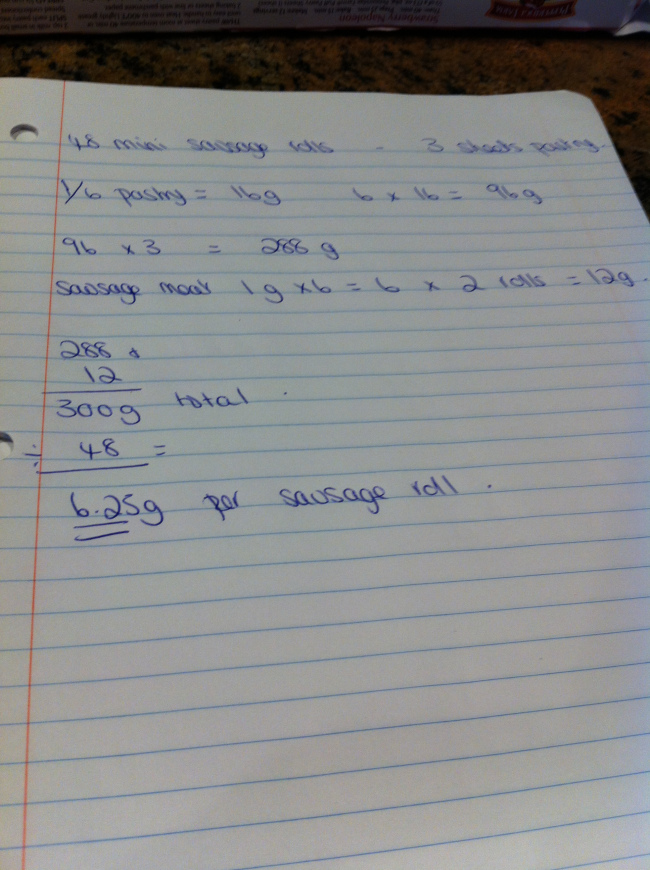 Strawberry Napoleon
48 mini sausage rolls - 3 sheets pastry.
1/6 pastry = 16g 6 x 16 = 96g
96 x 3 = 288 g
sausage meat 1g x 6 = 6 x 2 rolls = 12g.
288 &
12
300g total.
÷ 48 =
6.25g per sausage roll.